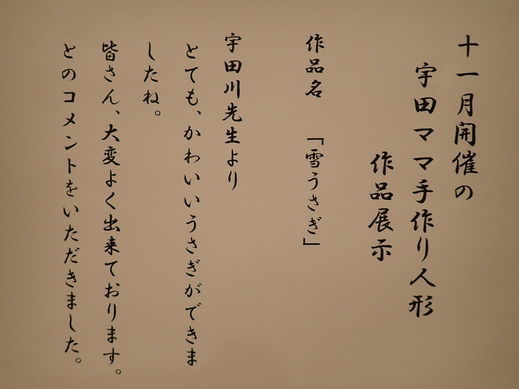 十一月開催の
宇田ママ手作り人形
作品展示
作品名　「雪うさぎ」
宇田川先生より
とても、かわいいうさぎができま
したね。
皆さん、大変よく出来ております。
とのコメントをいただきました。